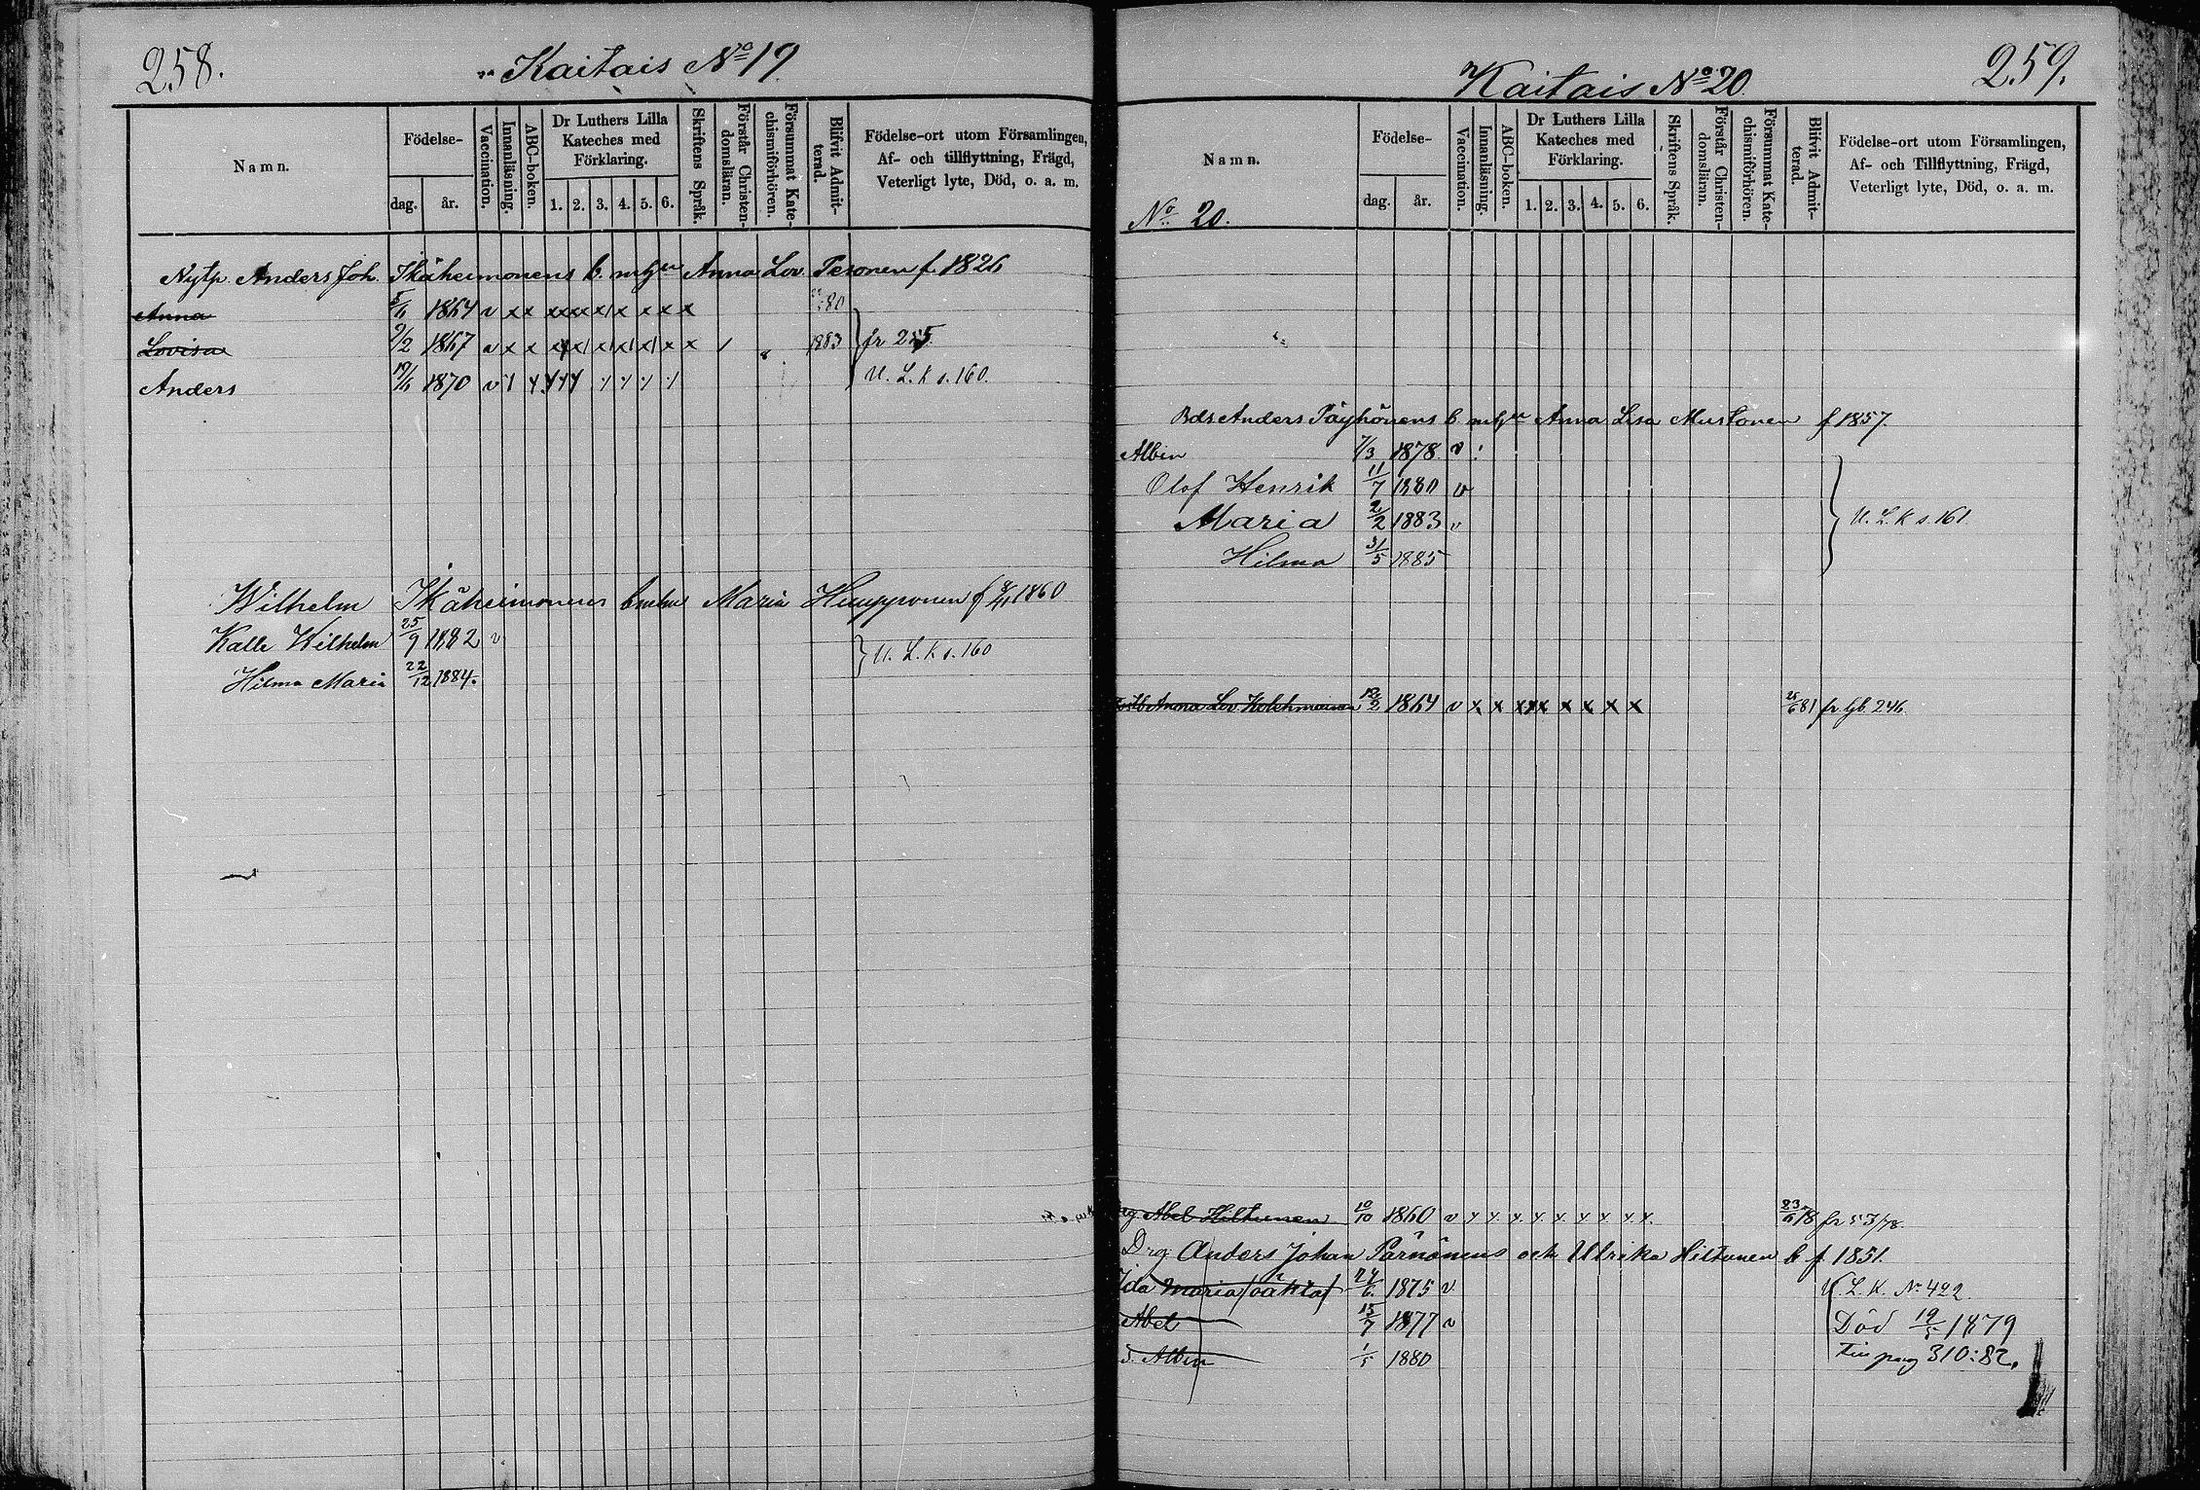 258.
Kaitais No 19
Namn.
Födelse-
dag.
år.
Vaccination.
Innanläsning.
ABC-boken.
Dr Luthers Lilla
Kateches med
Förklaring.
1. 2. 3. 4. 5. 6.
Skriftens Språk.
Förstår Christen-
domsläran.
Försummat Kate-
chismiförhören.
Blifvit Admit-
terad.
Födelse-ort utom Församlingen,
Af- och tillflyttning, Frägd,
Veterligt lyte, Död, o. a. m.
Anders Joh. Ikäheimonens b. Anna Lov. Tesonen f. 1826
Anna 5/11 1864 v x x x x x x x x x x :80
Lovisa 9/2 1867 v x x x x x x x x x x 1883 fr 255.
Anders 19/11 1870 v U. L. K s. 160.
Wilhelm Ikäheimonens Maria Huupponen f 1860
Kalle Wilhelm 25/9 1882 v U. L. K s. 160
Hilma Maria 22/12 1884.
259.
Kaitais No 20
Namn.
No 20.
Födelse-
dag.
år.
Vaccination.
Innanläsning.
ABC-boken.
Dr Luthers Lilla
Kateches med
Förklaring.
1. 2. 3. 4. 5. 6.
Skriftens Språk.
Förstår Christen-
domsläran.
Försummat Kate-
chismiförhören.
Blifvit Admit-
terad.
Födelse-ort utom Församlingen,
Af- och Tillflyttning, Frägd,
Veterligt lyte, Död, o. a. m.
Anders Päyhönens b. Anna Lisa Mustonen f 1857.
Albin 7/3 1878. v
Olof Henrik 11/7 1880 v
Maria 2/2 1883 v U. L. K s. 161.
Hilma 31/5 1885
Anna Lov Kolehmainen 12/2 1864 v x x x x x x x x x 81 fr 246.
Abel Hiltunen 10/10 1860 v 23/6 78 fr 53/78.
Drg Anders Johan Pärnänens och Ulrika Hiltunen b f. 1851.
Ida Maria 24/6 1875 v U. L. K. No 422.
Abel 15/7 1877 v Död 19/5 1879
Albin 1/5 1880 pag 310:82.